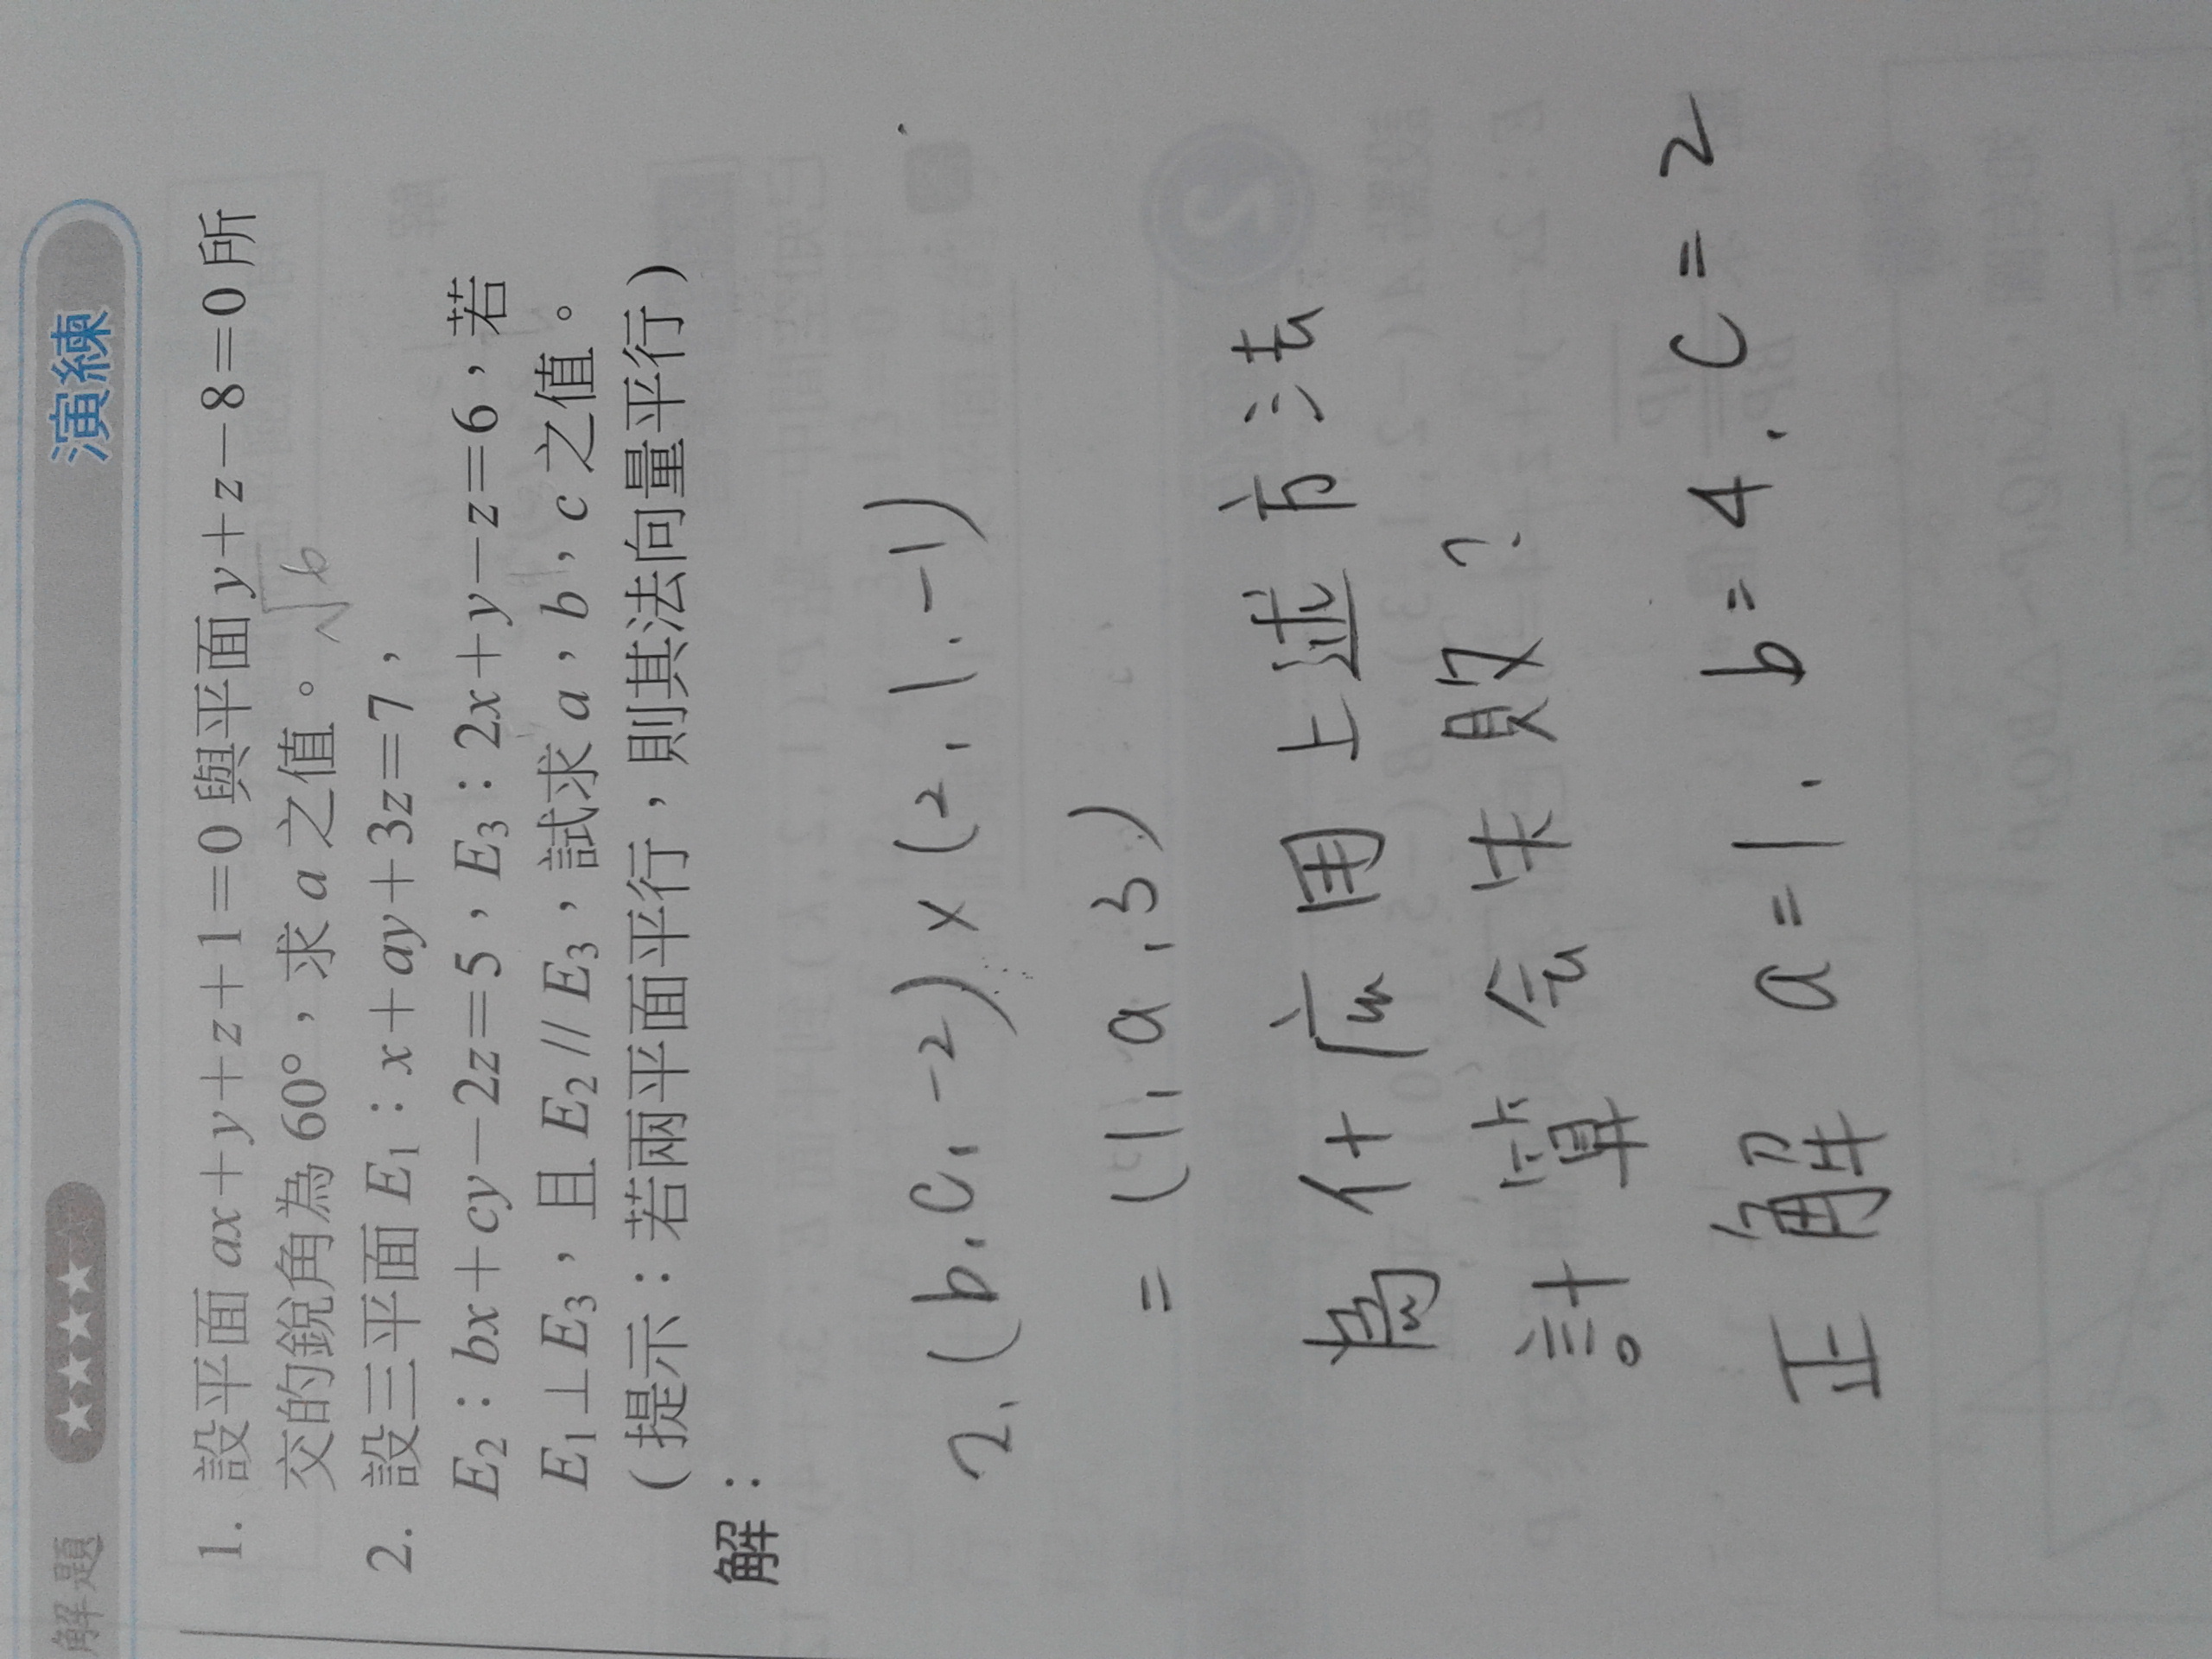 解題 ★★★★☆ 演練
1. 設平面 ax+y+z+1=0 與平面 y+z-8=0 所
交的銳角為 60°，求 a 之值。 √6
2. 設三平面 E₁：x+ay+3z=7，
E₂：bx+cy-2z=5，E₃：2x+y-z=6，若
E₁⊥E₃，且 E₂ // E₃，試求 a，b，c 之值。
(提示：若兩平面平行，則其法向量平行)
解：
2. (b, c, -2) × (2, 1, -1)
= (1, a, 3)
為什麼用上述方法
計算會失敗？
正解 a=1. b=4. c=2